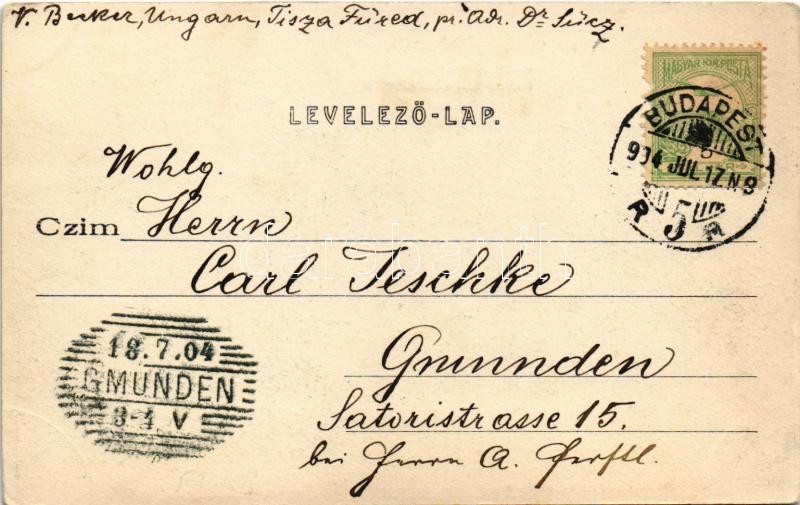 V. Becker, Ungarn, Tisza Füred, pr. Adr. Dr. Sücz.
MAGYAR KIR. POSTA
LEVELEZŐ-LAP.
BUDAPEST
904 JUL 17. N 8
5
Wohlg.
Czim Herrn
Carl Jeschke
Gmunden
Satoristrasse 15.
bei Herrn A. Ferstl.
18.7.04
GMUNDEN
V
darabanth.com